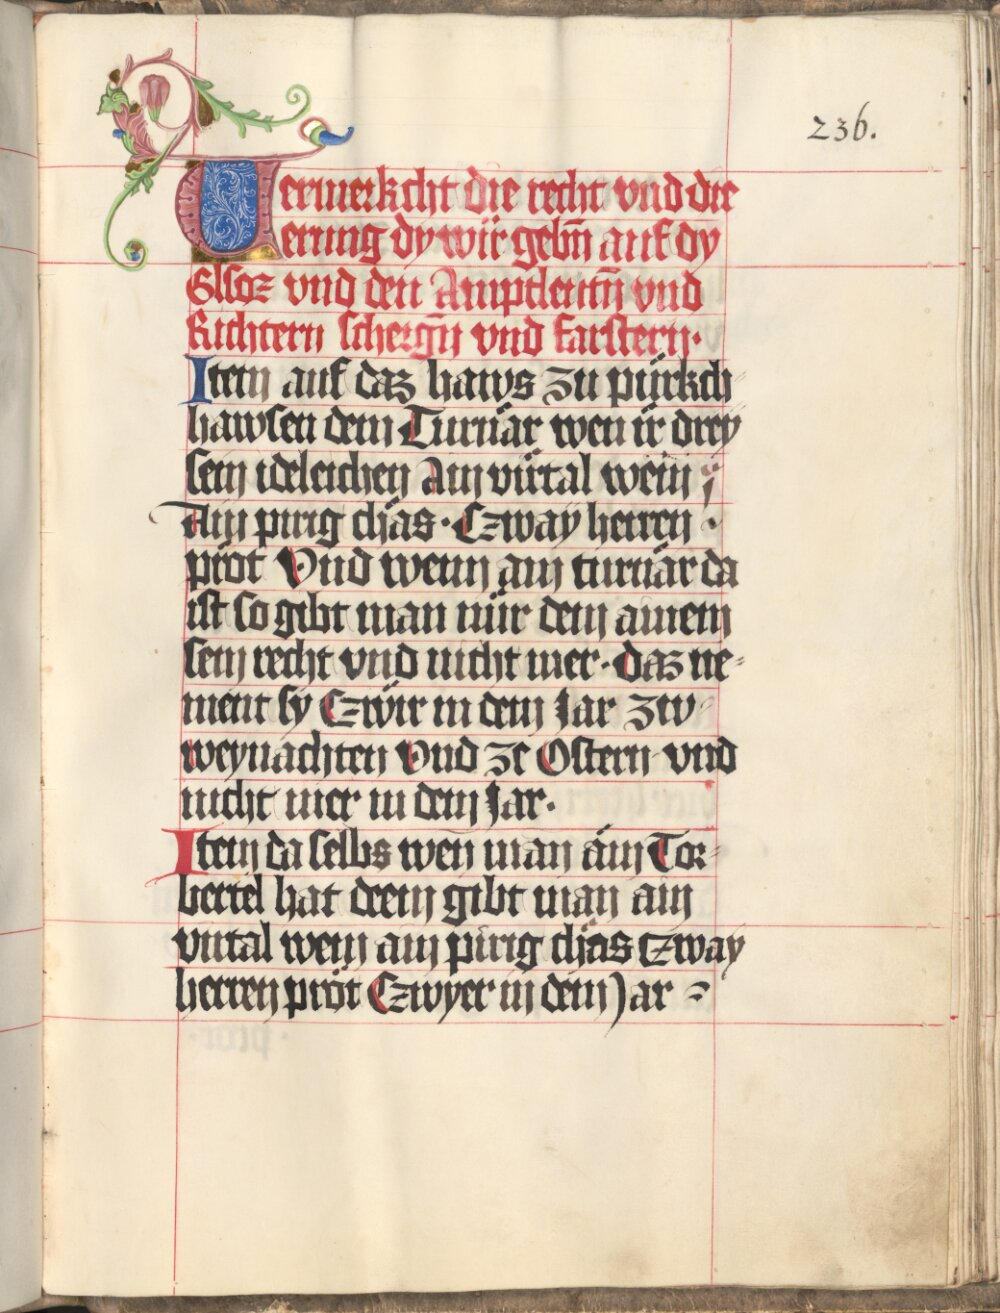 236.
Vermerkcht die recht vnd die
erung dy wir gebn̄ auf dy
Gslos vnd den Amptleutn̄ vnd
Richtern schergn̄ vnd farstern.
Item auf daz haws zu pürkch
hawsen dem Turnär wen ir drey
sein ideleichen Ain viirtal wein
Ain pirig chäs. Czway herren
pröt Vnd wenn ain turnär da
ist so gibt man nür dem ainem
sein recht vnd nicht mer. daz ne-
ment sy Czwir in dem Jar zw
weynachten Vnd ze Ostern vnd
nicht mer in dem Jar.
Item da selbs wen man äin Tor-
bertel hat deem gibt man ain
virtal wein ain pirig chäs czway
herren pröt Czwyer in dem Jar